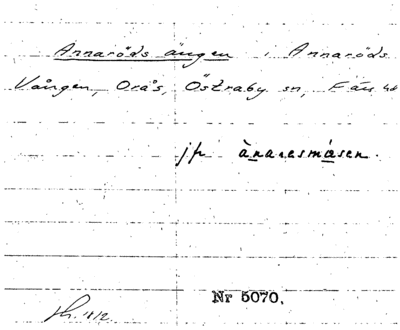 Annaröds ängen i Annaröds
Vången, Orås, Östraby sn, Färs hd
jfr ànaresmåsen.
Nr 5070.
1812.